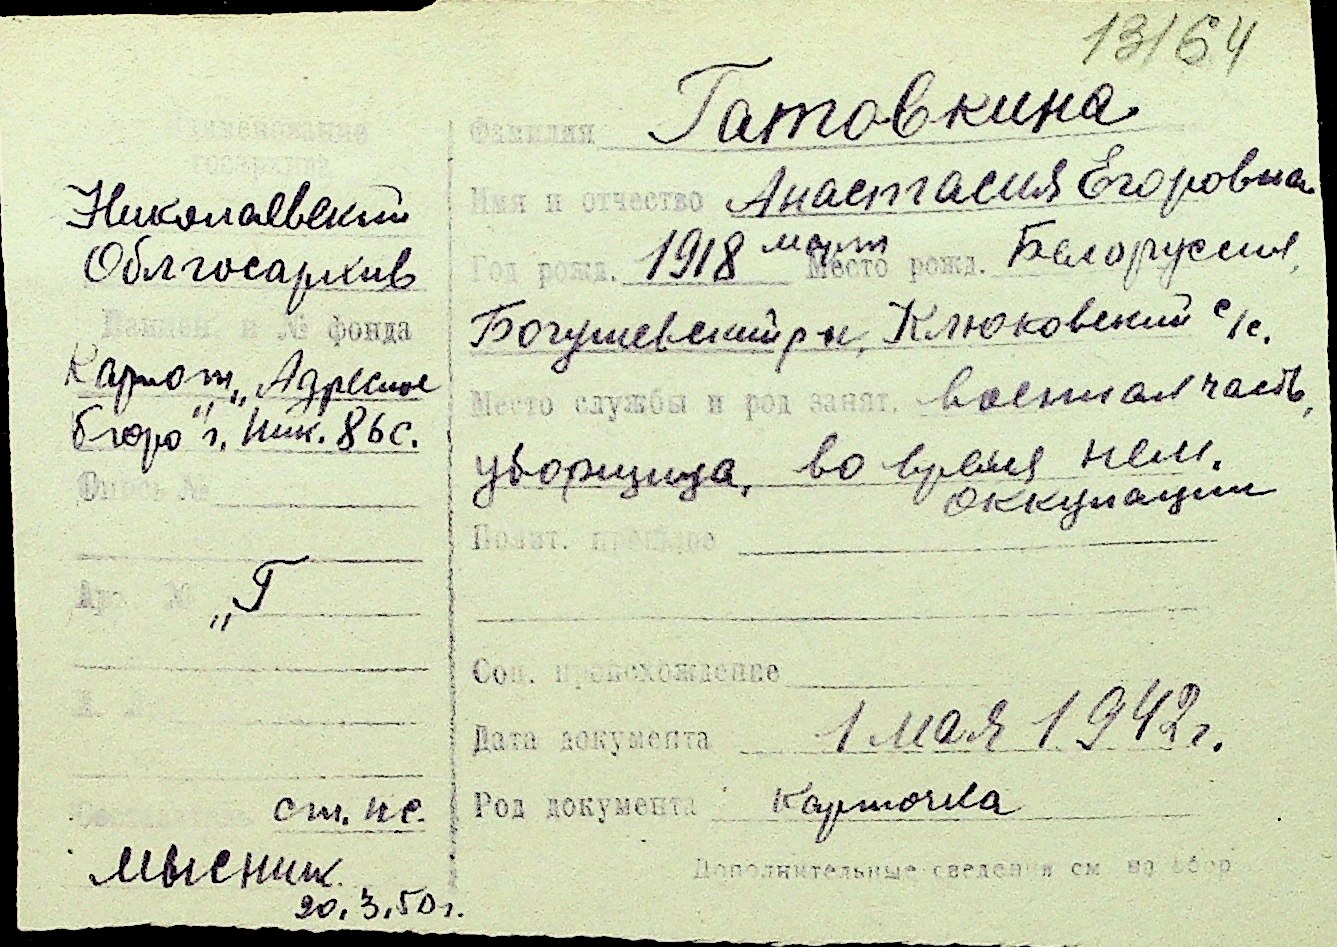 13164
Наименование
госархива
Николаевский
Облгосархив
Наимен. и № фонда
Картот. „Адресное
бюро" г. Ник. 86 с.
Опись №
Арх. №
„Г
Составитель ст. нс.
Мысник
20.3.50 г.
Фамилия Гатовкина
Имя и отчество Анастасия Егоровна
Год рожд. 1918 март Место рожд. Белоруссия,
Богушевский р-н, Клюковский с/с.
Место службы и род занят. военная часть,
уборщица, во время нем.
оккупации
Полит. прошлое
Соц. происхождение
Дата документа 1 мая 1942 г.
Род документа карточка
Дополнительные сведения см на обор